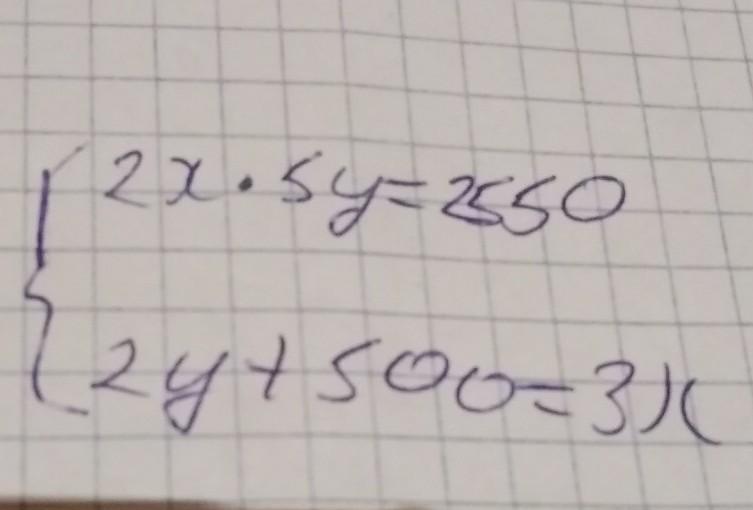 2x · 5y = 2550
2y + 500 = 3x